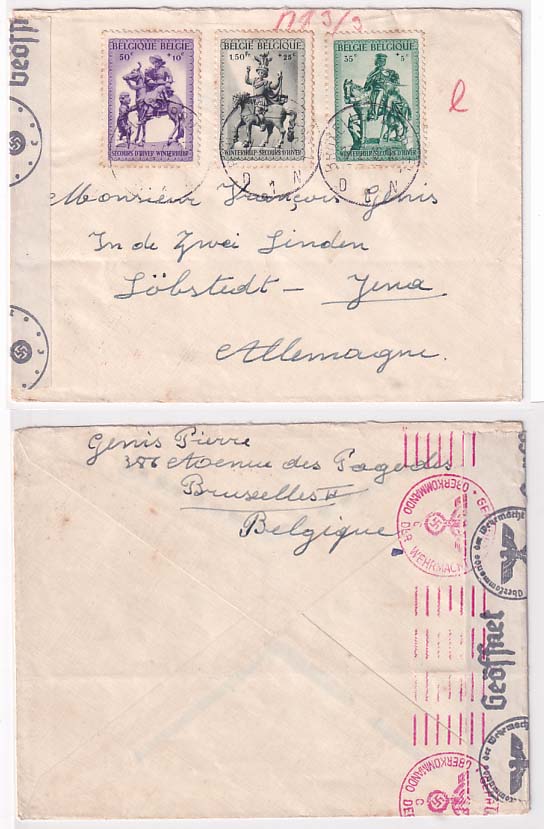 Π 3/3
Geöffn
BELGIQUE BELGIE
50c +10c
SECOURS D'HIVER WINTERHULP
BELGIQUE BELGIE
1,50Fr +25c
WINTERHULP SECOURS D'HIVER
BELGIQUE BELGIE
35c +5c
WINTERHULP SECOURS D'HIVER
D 1 N
D N
l
Monsieur François Genis
In de Zwei Linden
Löbstedt - Jena
Allemagne.
Genis Pierre
386 Avenue des Pagodes
Bruxelles II
Belgique
OBERKOMMANDO DER WEHRMACHT
C
Oberkommando der Wehrmacht
Geöffnet
Oberkommando der Wehrmacht
OBERKOMMANDO DER
C